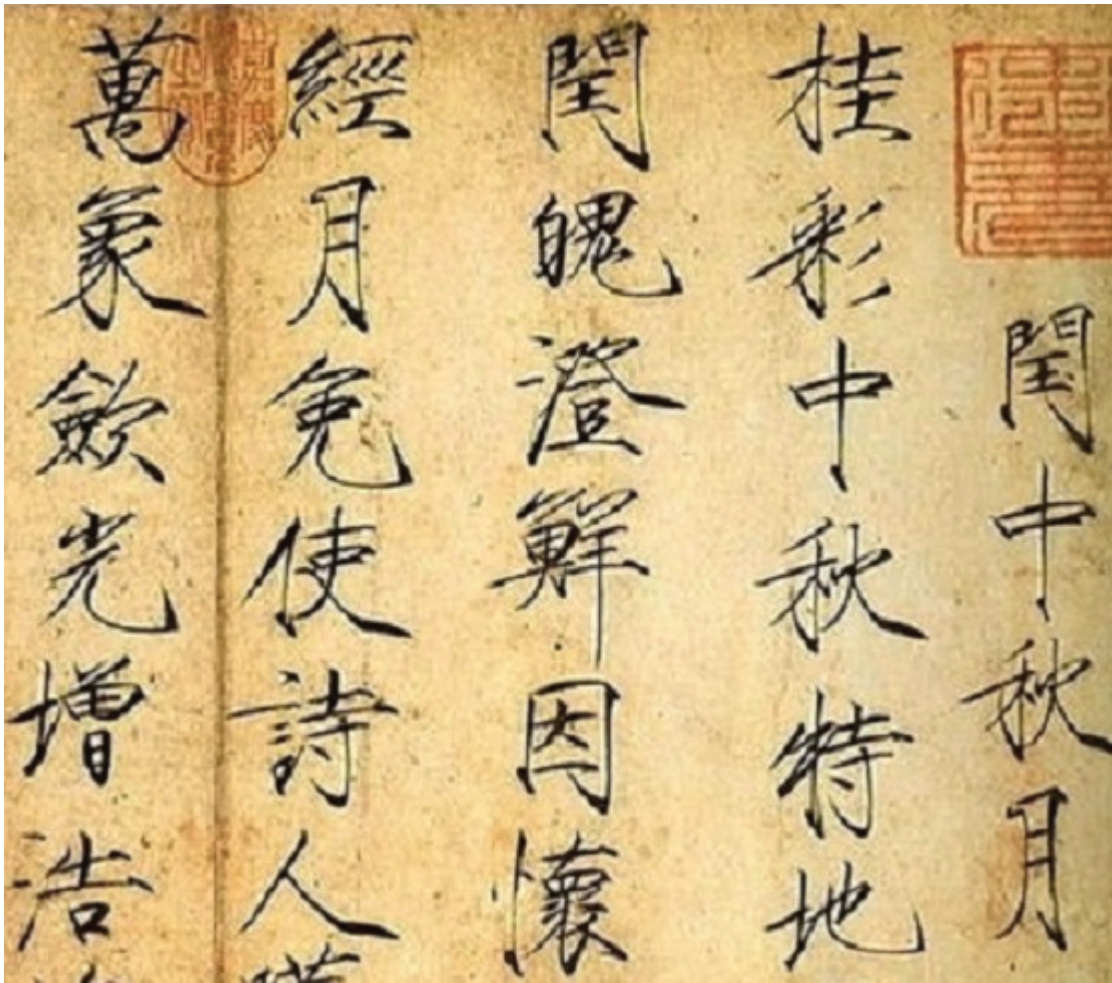 閏中秋月
桂彩中秋特地
閏魄澄鮮因懷
經月免使詩人
萬象斂光增浩